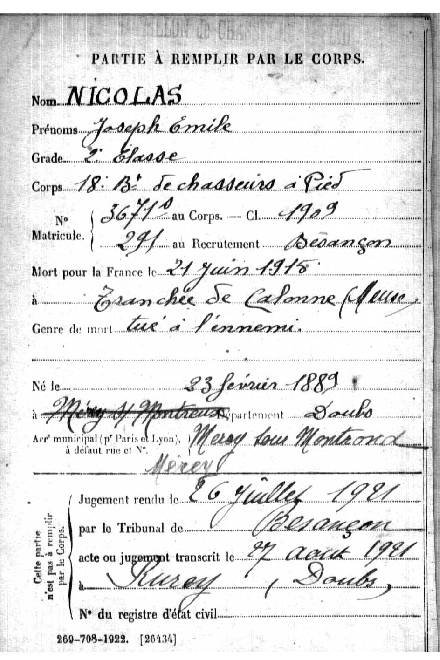 PARTIE À REMPLIR PAR LE CORPS.
Nom NICOLAS
Prénoms Joseph Emile
Grade 2e Classe
Corps 18e Bn de chasseurs à Pied
N° Matricule. 3671° au Corps. — Cl. 1909
291 au Recrutement Besançon
Mort pour la France le 21 juin 1915
à Tranchée de Calonne (Meuse)
Genre de mort tué à l'ennemi.
Né le 23 février 1889
à Mérey s/ Montrond Département Doubs
Arrt municipal (pr Paris et Lyon), à défaut rue et N°. Merey sous Montrond
Mérey
Cette partie n'est pas à remplir par le Corps.
Jugement rendu le 26 Juillet 1921
par le Tribunal de Besançon
acte ou jugement transcrit le 27 août 1921
à (Doubs)
N° du registre d'état civil
269-708-1922. [26434]